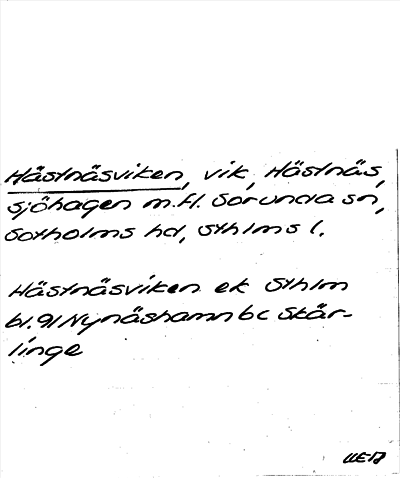 Hästnäsviken, vik, Hästnäs,
Sjöhagen m.fl. Sorunda sn,
Sotholms hd, Sthlms l.
Hästnäsviken ek Sthlm
bl. 91 Nynäshamn bc Skär-
linge